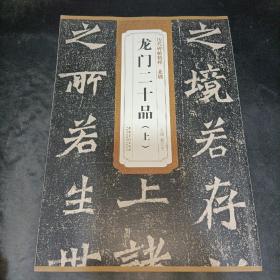 历代碑帖精粹 北魏
龙门二十品
（上）
之境若存
上諸
之所若生世